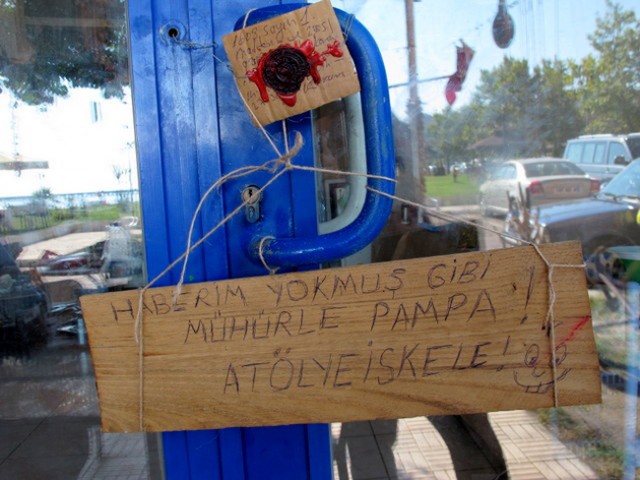 HABERİM YOKMUŞ GİBİ
MÜHÜRLE PAMPA !
ATÖLYEİSKELE!